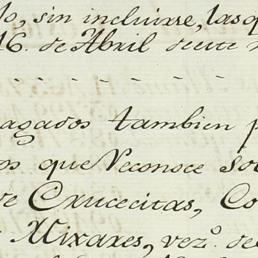 lo, sin incluirse, las q
16. de Abril de este
agados tambien p
os que Reconoce so
de Crucecitas, Co
Mixares, vez.º de